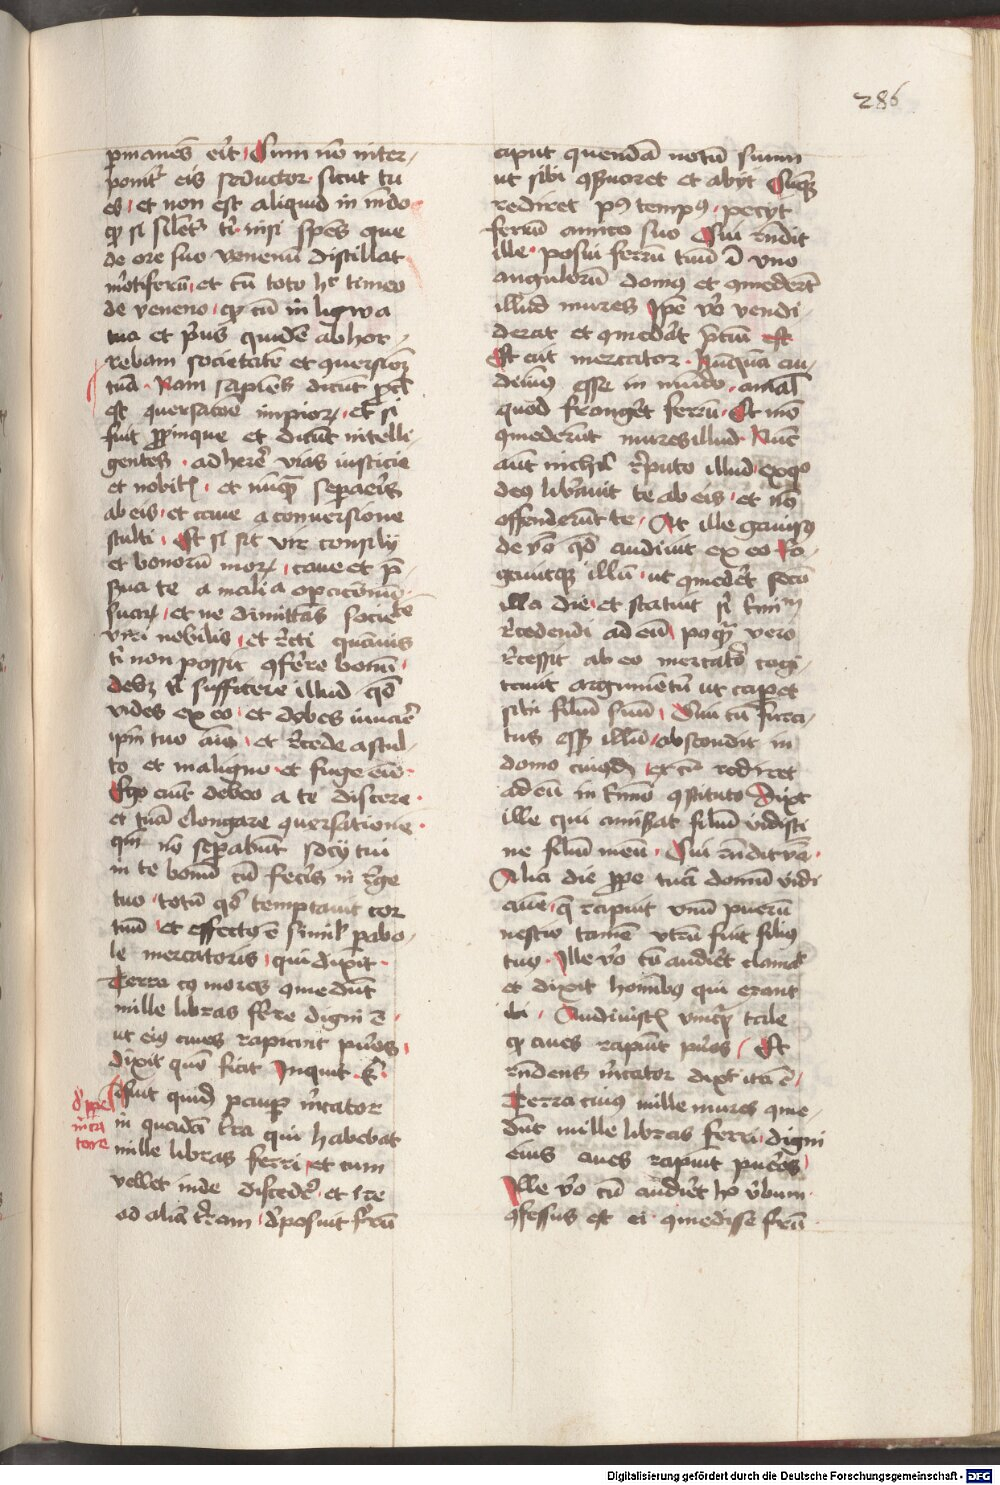 286
permanens erit Cum non inter-
ponitur eis seductor sicut tu
es et non est aliquid in mundo
quod si siletur tibi nisi serpens que
de ore suo venenum distillat
mortiferum et cum toto hoc timeo
de veneno quod cum in ligwa
tua et prius quidem abhor-
rebam societatem et conversionem
tuam Nam sapiens dicit procul
est conversacione impiorum et si
fuit propinque et dicunt intelli-
gentes adherere vias iusticie
et nobiles et nunquam separaveris
ab eis et cave a conversione
stulti Et si sit vir consilii
et bonorum morum cave et pre-
serva te a malicia operacionum
suarum et ne dimittas societatem
viri nobilis et recti quamvis
tibi non possit conferre bonum
debet tibi sufficere illud quod
vides ex eo et debes iuvare
ipsum tuo animo et recede a stul-
to et maligno et fuge eum
Ergo enim debeo a te discere
et tuam elongare conversatione
quoniam non separabunt socii tui
in te bonum cum feceris in rege
tuo totum quod temptavit cor
tuum et effectus est similis parabo-
le mercatoris qui dixit
Terra cuius mures comedunt
mille libras ferre digni est
ut eius aves rapiunt pueros
dixit quomodo fuit Inquit
Fuit quidam pauper mercator
in quadam terra qui habebat
mille libras ferri et cum
vellet inde discedere et ire
ad aliam terram deposuit ferrum
de paupere
merca
tore
caput quendam notum suum
ut sibi conservaret et abiit Cumque
rediret post tempus peciit
ferrum amico suo Cui respondit
ille posui ferrum tuum in uno
angulorum domus et comederunt
illud mures Ipse vero vendi-
derat et comederat precium Et
Et ait mercator Nunquam au-
divimus esse in mundo animal
quod frangeret ferrum Et modo
comederunt mures illud Nunc
autem nichil reputo illud ex quo
deus liberavit te ab eis et non
offenderunt te At ille gavisus
de verbo quod audivit ex eo Ro-
gavitque illum ut comederet secum
illa die et statuit sibi terminum
recedendi ad eum postquam vero
recessit ab eo mercator cogi-
tavit argumentum ut caperet
sibi filium suum Qui cum fura-
tus esset illum abscondit in
domo cuiusdam Et cum rediret
ad eum in termino constituto Dixit
ille qui amiserat filium vidisti
ne filium meum Cui respondit vidi
Alia die prope tuam domum vidi
avem que rapuit unum puerum
nescio tamen utrum fuit filius
tuus Ille vero cum audiret clamavit
et dixit hominibus qui erant
ibi Audivistis unquam tale
quod aves rapiunt pueros Et
respondens mercator dixit ita est
Terra cuius mille mures come-
dunt mille libras ferri digni
eius aves rapiunt pueros
Ille vero cum audiret hoc verbum
confessus est ei comedisse ferrum
Digitalisierung gefördert durch die Deutsche Forschungsgemeinschaft - DFG